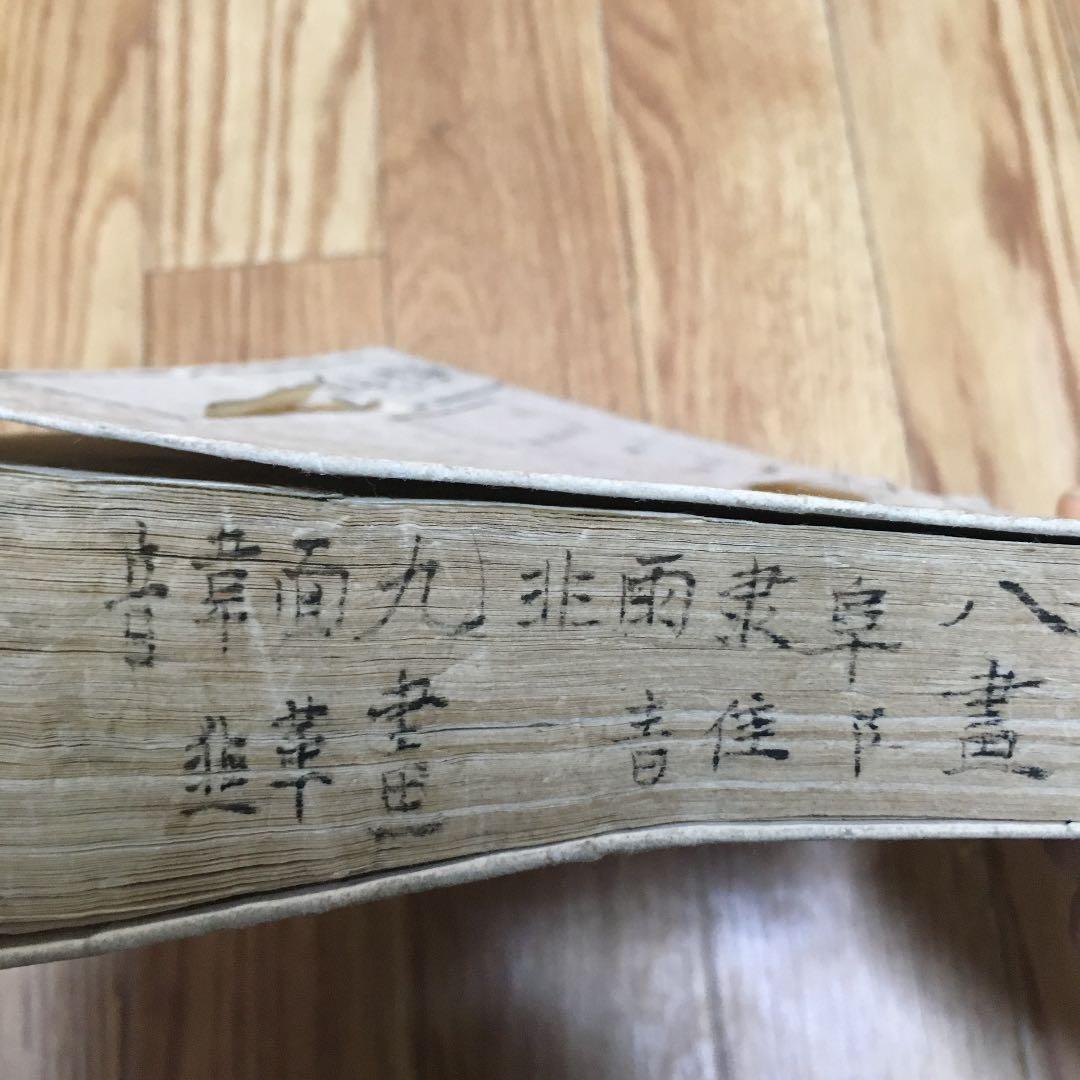 八畫
阜阝
隶隹
雨青
非
九畫
面革
韋韭
音